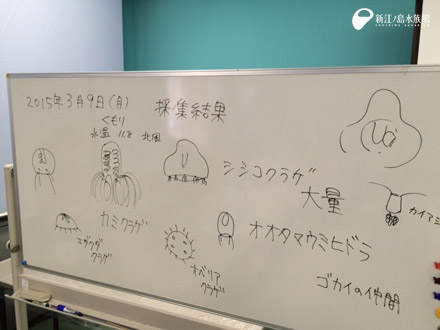 新江ノ島水族館
2015年3月9日(月) 採集結果
くもり
水温 11.8 北風
シシコクラゲ
大量
カイアシ
カミクラゲ
オオタマウミヒドラ
エダクダ
クラゲ
オベリア
クラゲ
ゴカイの仲間